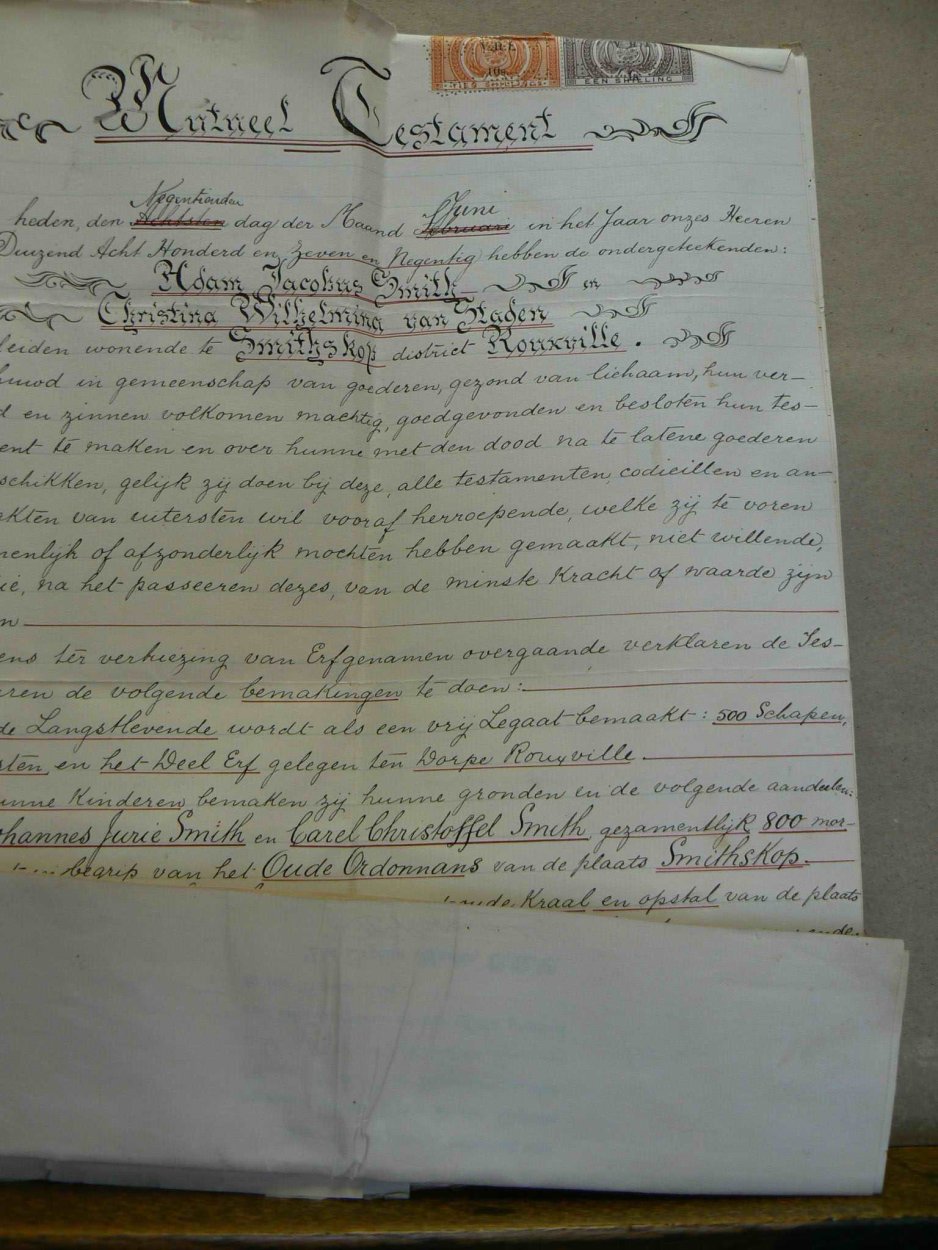 V.R.I. 10s. TIEN SHILLINGS
V.R.I. 1s. EEN SHILLING
Mutueel Testament
Negentienden Juni
heden, den Achtsten dag der Maand Februari in het Jaar onzes Heeren
Duizend Acht Honderd en Zeven en Negentig hebben de ondergeteekenden:
Adam Jacobus Smith en
Christina Wilhelmina van Staden
leiden wonende te Smithskop district Rouxville.
huwd in gemeenschap van goederen, gezond van lichaam, hun ver-
d en zinnen volkomen machtig, goedgevonden en besloten hun tes-
ent te maken en over hunne met den dood na te latene goederen
schikken, gelijk zij doen bij deze, alle testamenten, codicillen en an-
akten van uitersten wil vooraf herroepende, welke zij te voren
menlijk of afzonderlijk mochten hebben gemaakt, niet willende,
ie, na het passeeren dezes, van de minste Kracht of waarde zijn
n
ens ter verkiezing van Erfgenamen overgaande verklaren de Tes-
uren de volgende bemakingen te doen:
de Langstlevende wordt als een vrij Legaat bemaakt: 500 Schapen,
sten, en het Deel Erf gelegen ten Dorpe Rouxville.
unne Kinderen bemaken zij hunne gronden en de volgende aandeelen:
ohannes Jurie Smith en Carel Christoffel Smith, gezamentlijk 800 mor-
begrip van het Oude Ordonnans van de plaats Smithskop.
oude Kraal en opstal van de plaats